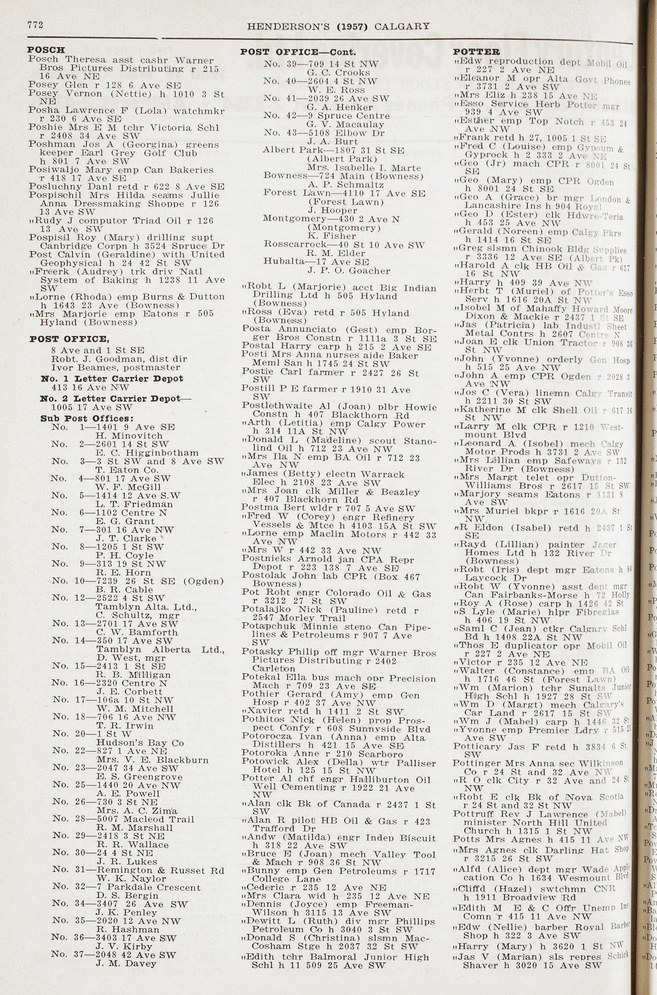 772
HENDERSON'S (1957) CALGARY
POSCH
Posch Theresa asst cashr Warner
Bros Pictures Distributing r 215
16 Ave NE
Posey Glen r 128 6 Ave SE
Posey Vernon (Nettie) h 1010 3 St
NE
Posha Lawrence F (Lola) watchmkr
r 230 6 Ave SE
Poshie Mrs E M tchr Victoria Schl
r 2408 34 Ave SW
Poshman Jos A (Georgina) greens
keeper Earl Grey Golf Club
h 801 7 Ave SW
Posiwaljo Mary emp Can Bakeries
r 418 17 Ave SE
Posluchny Danl retd r 622 8 Ave SE
Pospischil Mrs Hilda seams Jullie
Anna Dressmaking Shoppe r 126
13 Ave SW
"Rudy J computor Triad Oil r 126
13 Ave SW
Pospisil Roy (Mary) drilling supt
Canbridge Corpn h 3524 Spruce Dr
Post Calvin (Geraldine) with United
Geophysical h 24 42 St SW
"Freerk (Audrey) trk driv Natl
System of Baking h 1238 11 Ave
SW
"Lorne (Rhoda) emp Burns & Dutton
h 1643 23 Ave (Bowness)
"Mrs Marjorie emp Eatons r 505
Hyland (Bowness)
POST OFFICE,
8 Ave and 1 St SE
Robt. J. Goodman, dist dir
Ivor Beames, postmaster
No. 1 Letter Carrier Depot
413 16 Ave NW
No. 2 Letter Carrier Depot—
1005 17 Ave SW
Sub Post Offices:
No. 1—1401 9 Ave SE
H. Minovitch
No. 2—2601 14 St SW
E. C. Higginbotham
No. 3—3 St SW and 8 Ave SW
T. Eaton Co.
No. 4—801 17 Ave SW
W. F. McGill
No. 5—1414 12 Ave S.W
L. T. Friedman
No. 6—1102 Centre N
E. G. Grant
No. 7—301 16 Ave NW
J. T. Clarke
No. 8—1205 1 St SW
P. H. Coyle
No. 9—313 19 St NW
R. E. Horn
No. 10—7239 26 St SE (Ogden)
B. R. Cable
No. 12—2522 4 St SW
Tamblyn Alta. Ltd.,
C. Schultz, mgr
No. 13—2701 17 Ave SW
C. W. Bamforth
No. 14—350 17 Ave SW
Tamblyn Alberta Ltd.,
D. West, mgr
No. 15—2413 1 St SE
R. B. Milligan
No. 16—2320 Centre N
J. E. Corbett
No. 17—106a 10 St NW
W. M. Mitchell
No. 18—706 16 Ave NW
T. R. Irwin
No. 20—1 St W
Hudson's Bay Co
No. 22—827 1 Ave NE
Mrs. V. E. Blackburn
No. 23—2047 34 Ave SW
E. S. Greengrove
No. 25—1440 20 Ave NW
A. E. Powell
No. 26—730 3 St NE
Mrs. A. C. Zima
No. 28—5007 Macleod Trail
R. M. Marshall
No. 29—2418 3 St NE
R. R. Wallace
No. 30—24 4 St NE
J. R. Lukes
No. 31—Remington & Russet Rd
W. K. Naylor
No. 32—7 Parkdale Crescent
D. S. Bergin
No. 34—3407 26 Ave SW
J. K. Penley
No. 35—2020 12 Ave NW
R. Hashman
No. 36—3403 17 Ave SW
J. V. Kirby
No. 37—2048 42 Ave SW
J. M. Davey
POST OFFICE—Cont.
No. 39—709 14 St NW
G. C. Crooks
No. 40—2604 4 St NW
W. E. Ross
No. 41—2039 26 Ave SW
G. A. Henker
No. 42—9 Spruce Centre
G. V. Macaulay
No. 43—5108 Elbow Dr
J. A. Burt
Albert Park—1807 31 St SE
(Albert Park)
Mrs. Isabelle I. Marte
Bowness—724 Main (Bowness)
A. P. Schmaltz
Forest Lawn—4110 17 Ave SE
(Forest Lawn)
J. Hooper
Montgomery—430 2 Ave N
(Montgomery)
K. Fisher
Rosscarrock—40 St 10 Ave SW
R. M. Elder
Hubalta—17 Ave SE
J. P. O. Goacher
"Robt L (Marjorie) acct Big Indian
Drilling Ltd h 505 Hyland
(Bowness)
"Ross (Eva) retd r 505 Hyland
(Bowness)
Posta Annunciato (Gest) emp Bor-
ger Bros Constrn r 1111a 3 St SE
Postal Harry carp h 215 2 Ave SE
Posti Mrs Anna nurses aide Baker
Meml San h 1745 24 St SW
Postie Carl farmer r 2427 26 St
SW
Postill P E farmer r 1910 31 Ave
SW
Postlethwaite Al (Joan) plbr Howie
Constn h 407 Blackthorn Rd
"Arth (Letitia) emp Calgary Power
h 314 11A St NW
"Donald L (Madeline) scout Stano-
lind Oil h 712 23 Ave NW
"Mrs Ila N emp BA Oil r 712 23
Ave NW
"James (Betty) electn Warrack
Elec h 2108 23 Ave SW
"Mrs Joan clk Miller & Beazley
r 407 Blackhorn Rd
Postma Bert wldr r 707 5 Ave SW
"Fred W (Corey) engr Refinery
Vessels & Mtce h 4103 15A St SW
"Lorne emp Maclin Motors r 442 33
Ave NW
"Mrs W r 442 33 Ave NW
Postnieks Arnold jan CPA Repr
Depot r 223 138 7 Ave SE
Postolak John lab CPR (Box 467
Bowness)
Pot Robt engr Colorado Oil & Gas
r 3212 27 St SW
Potalajko Nick (Pauline) retd r
2547 Morley Trail
Potapchuk Minnie steno Can Pipe-
lines & Petroleums r 907 7 Ave
SW
Potasky Philip off mgr Warner Bros
Pictures Distributing r 2402
Carleton
Potekal Ella bus mach opr Precision
Mach r 709 23 Ave SE
Pothier Gerard (Amy) emp Gen
Hosp r 402 37 Ave NW
"Xavier retd h 1411 2 St NW
Pothitos Nick (Helen) prop Pros-
pect Confy r 608 Sunnyside Blvd
Potorocza Ivan (Anna) em Alta
Distillers h 421 15 Ave SE
Potoroka Anne r 210 Scarboro
Potowick Alex (Della) wtr Palliser
Hotel h 125 15 St NW
Potter Al chf engr Halliburton Oil
Well Cementing r 1922 21 Ave
NW
"Alan clk Bk of Canada r 2437 1 St
SW
"Alan R pilot HB Oil & Gas r 423
Trafford Dr
"Andw (Matilda) engr Inden Biscuit
h 318 22 Ave SW
"Bruce E (Joan) mech Valley Tool
& Mach r 908 36 St NW
"Bunny emp Gen Petroleums r 1717
College Lane
"Cederic r 235 12 Ave NE
"Mrs Clara wid h 235 12 Ave NE
"Dennis (Joyce) emp Freeman-
Wilson h 3115 13 Ave SW
"Dewitt L (Ruth) div mgr Phillips
Petroleum Co h 3040 3 St SW
"Donald S (Christina) slsmn Mac-
Cosham Stge h 2037 32 St SW
"Edith tchr Balmoral Junior High
Schl h 11 509 25 Ave SW
POTTER
"Edw reproduction dept Mobil Oil
r 227 2 Ave NE
"Eleanor M opr Alta Govt Phones
r 3731 2 Ave SW
"Mrs Eliz h 238 15 Ave NE
"Esso Service Herb Potter mgr
939 4 Ave SW
"Esther emp Top Notch r 453 24
Ave NW
"Frank retd h 27, 1005 1 St SE
"Fred C (Louise) emp Gypsum &
Gyprock h 2 333 2 Ave NE
"Geo (Jr) mach CPR r 8001 24 St
SE
"Geo (Mary) emp CPR Ogden
h 8001 24 St SE
"Geo A (Grace) br mgr London &
Lancashire Ins h 904 Royal
"Geo D (Ester) clk Hdwre-Teria
h 453 25 Ave NW
"Gerald (Noreen) emp Calgy Pkrs
h 1414 16 St SE
"Greg slsmn Chinook Bldg Supplies
r 3336 12 Ave SE (Albert Pk)
"Harold A clk HB Oil & Gas r 617
16 St NW
"Harry h 409 39 Ave NW
"Herbt T (Muriel) of Potter's Esso
Serv h 1616 20A St NW
"Isobel M of Mahaffy Howard Moore
Dixon & Mackie r 2437 1 St SE
"Jas (Patricia) lab Industl Sheet
Metal Contrs h 2607 Centre N
"Joan E clk Union Tractor r 908 36
St NW
"John (Yvonne) orderly Gen Hosp
h 515 25 Ave NW
"John A emp CPR Ogden r 2028 2
Ave NW
"Jos C (Vera) linemn Calgy Transit
h 2211 30 St SW
"Katherine M clk Shell Oil r 617 16
St NW
"Larry M clk CPR r 1210 West-
mount Blvd
"Leonard A (Isobel) mech Calgy
Motor Prods h 3731 2 Ave SW
"Mrs Lillian emp Safeways r 132
River Dr (Bowness)
"Mrs Margt telet opr Dutton-
Williams Bros r 2617 15 St SW
"Marjory seams Eatons r 1131 8
Ave SW
"Mrs Muriel bkpr r 1616 20A St
NW
"R Eldon (Isabel) retd h 2437 1 St
SE
"Rayd (Lillian) painter Jager
Homes Ltd h 132 River Dr
(Bowness)
"Robt (Iris) dept mgr Eatons h
Laycock Dr
"Robt W (Yvonne) asst dept mgr
Can Fairbanks-Morse h 72 Holly
"Roy A (Rose) carp h 1426 42 St
"S Lyle (Marie) hlpr Fibreglas
h 406 19 St NW
"Saml C (Jean) ctkr Calgary Schl
Bd h 1408 22A St NW
"Thos E duplicator opr Mobil Oil
r 227 2 Ave NE
"Victor r 235 12 Ave NE
"Walter (Constance) emp BA Oil
h 1716 46 St (Forest Lawn)
"Wm (Marion) tchr Sunalta Junior
High Schl h 1927 28 St SW
"Wm D (Margt) mech Calgary's
Car Land r 2617 15 St SW
"Wm J (Mabel) carp h 1446 32 St
"Yvonne emp Premier Ldry r 515 25
Ave SW
Potticary Jas F retd h 3834 6 St
SW
Pottinger Mrs Anna sec Wilkinson
Co r 24 St and 32 Ave NW
"R O clk City r 32 Ave and 24 St
NW
"Robt E clk Bk of Nova Scotia
r 24 St and 32 St NW
Pottruff Rev J Lawrence (Mabel)
minister North Hill United
Church h 1315 1 St NW
Potts Mrs Agnes h 415 11 Ave NW
"Mrs Agnes clk Darling Hat Shop
r 3215 26 St SW
"Alfd (Alice) dept mgr Wade Appli
cation Co h 1634 Wesmount Blvd
"Cliffd (Hazel) swtchmn CNR
h 1911 Broadview Rd
"Edith M E & C Offr Unemp Ins
Comn'r 415 11 Ave NW
"Edw (Nellie) barber Royal Barber
Shop h 322 3 Ave SW
"Harry (Mary) h 3620 1 St NW
"Jas V (Marian) sls repres Schick
Shaver h 3020 15 Ave SW